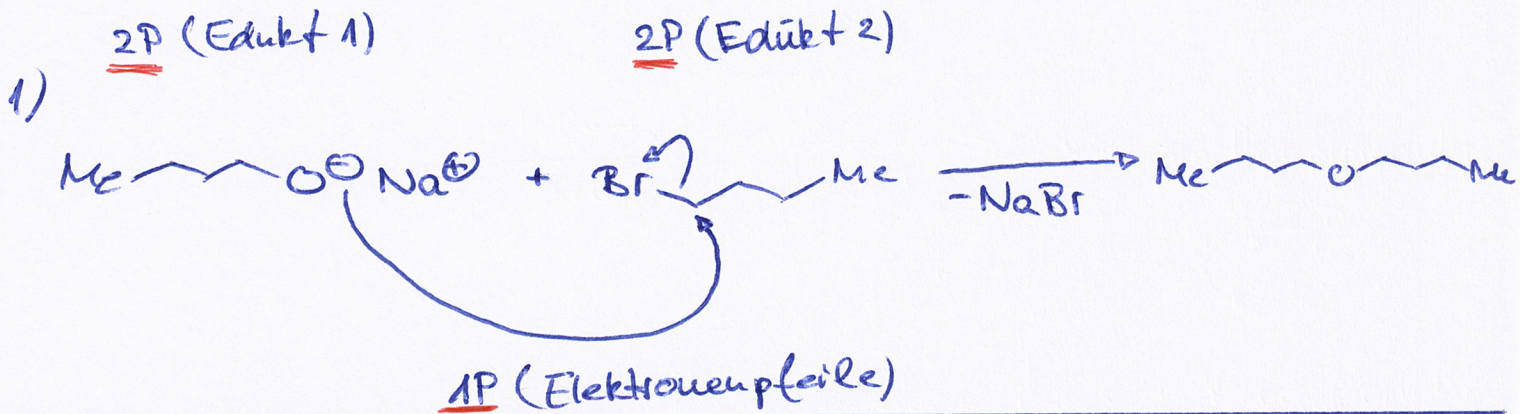 2P (Edukt 1) 2P (Edükt 2)
1)
Me O⊖ Na⊕ + Br Me -NaBr Me O Me
1P (Elektronenpfeile)